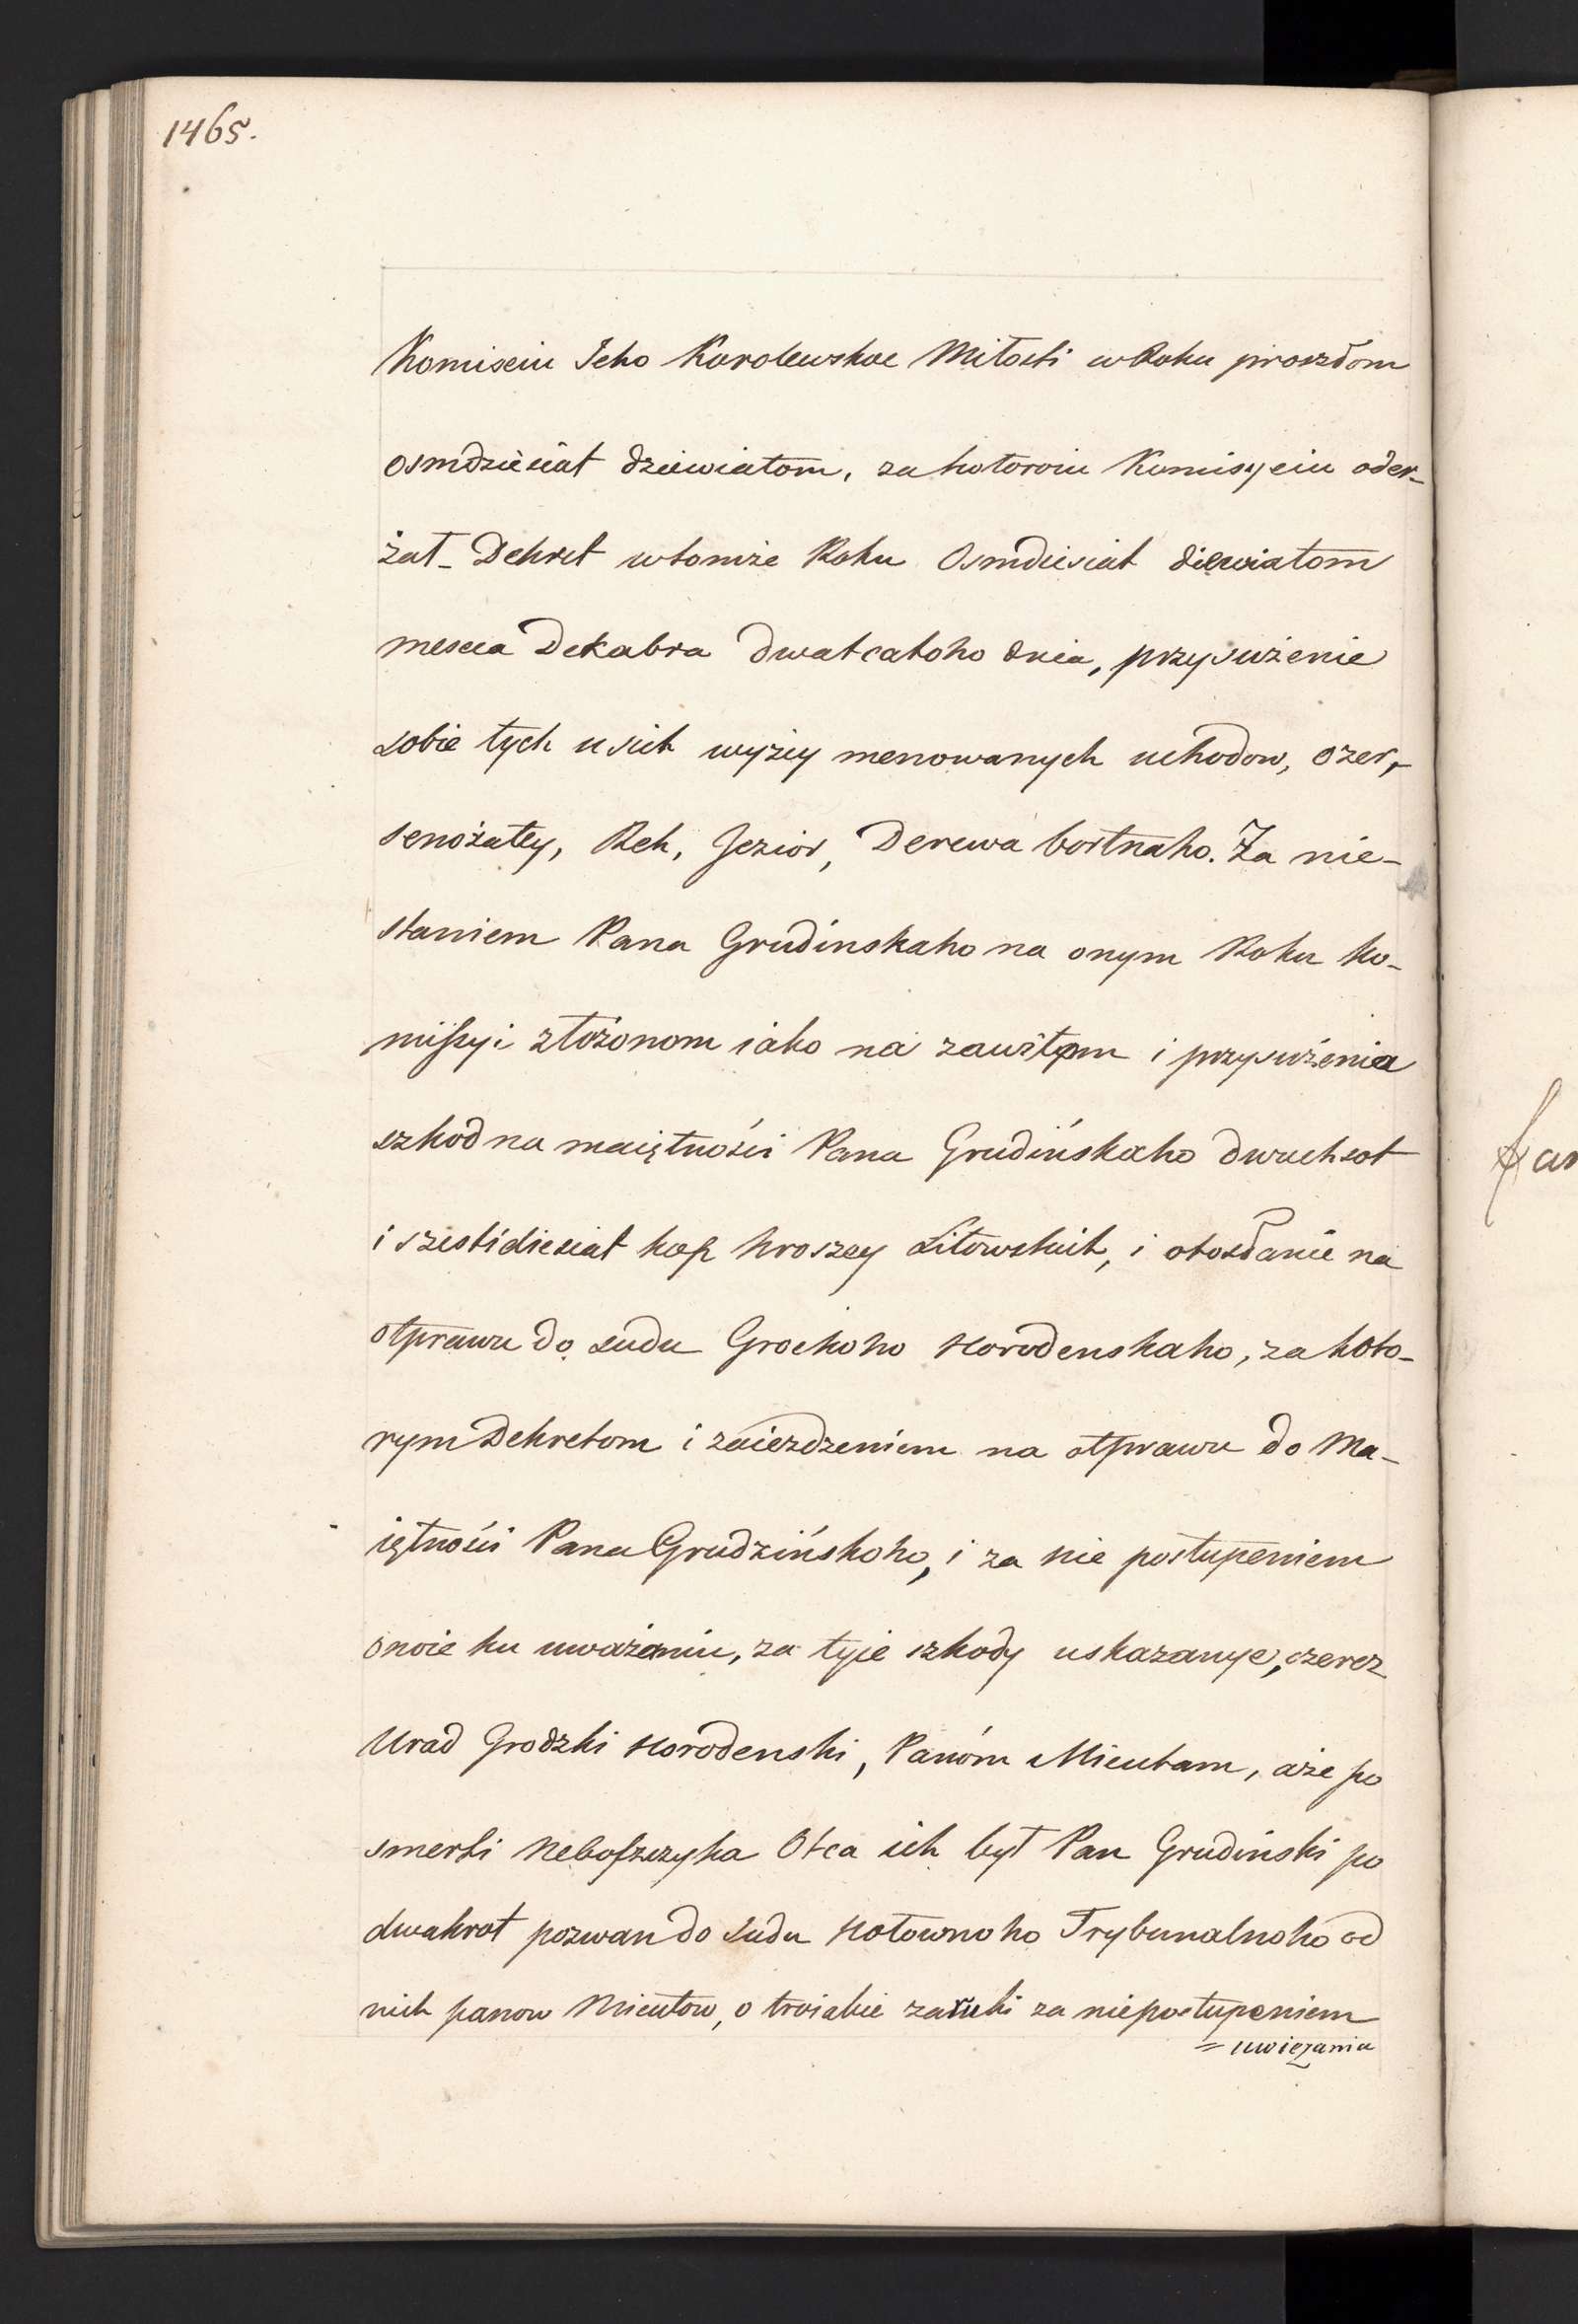 1465.
Komisciu Jeho Korolewskoe Miłosti w Roku proszłom
osmdziesiat dziewiatom, za kotoroiu Komisyeiu oder-
żał Dekret w tomże Roku Osmdiesiat diewiatom
mesca Dekabra dwatcatoho dnia, przysużenie
sobie tych usich wyżey menowanych uchodow, ozer,
senożatey, Rek, Jezior, Derewa bortnaho. Za nie-
staniem Pana Grudinskaho na onym Roku ko-
missyi złożonom iako na zawitom i przysużenia
szkod na maiętności Pana Grudińskaho dwuchsot
i szestidiesiat kop hroszey Litowskich, i otosłanie na
otprawu do sudu Grockoho Horodenskaho, za koto-
rym Dekretom i zaiezdzeniem na otprawu do Ma-
iętności Pana Grudzińskoho, i za nie postupeniem
onoie ku uważaniu, za tyie szkody uskazanye, czerez
Urad Grodzki Horodenski, Panóm Mieutam, aże po
smerti Nebofzczyka Otca ich był Pan Grudinski po
dwakrot pozwan do Sudu Hołownoho Trybunalnoho od
nich panow Mieutow, o troiakie zaruki za niepostupeniem
= uwiezania